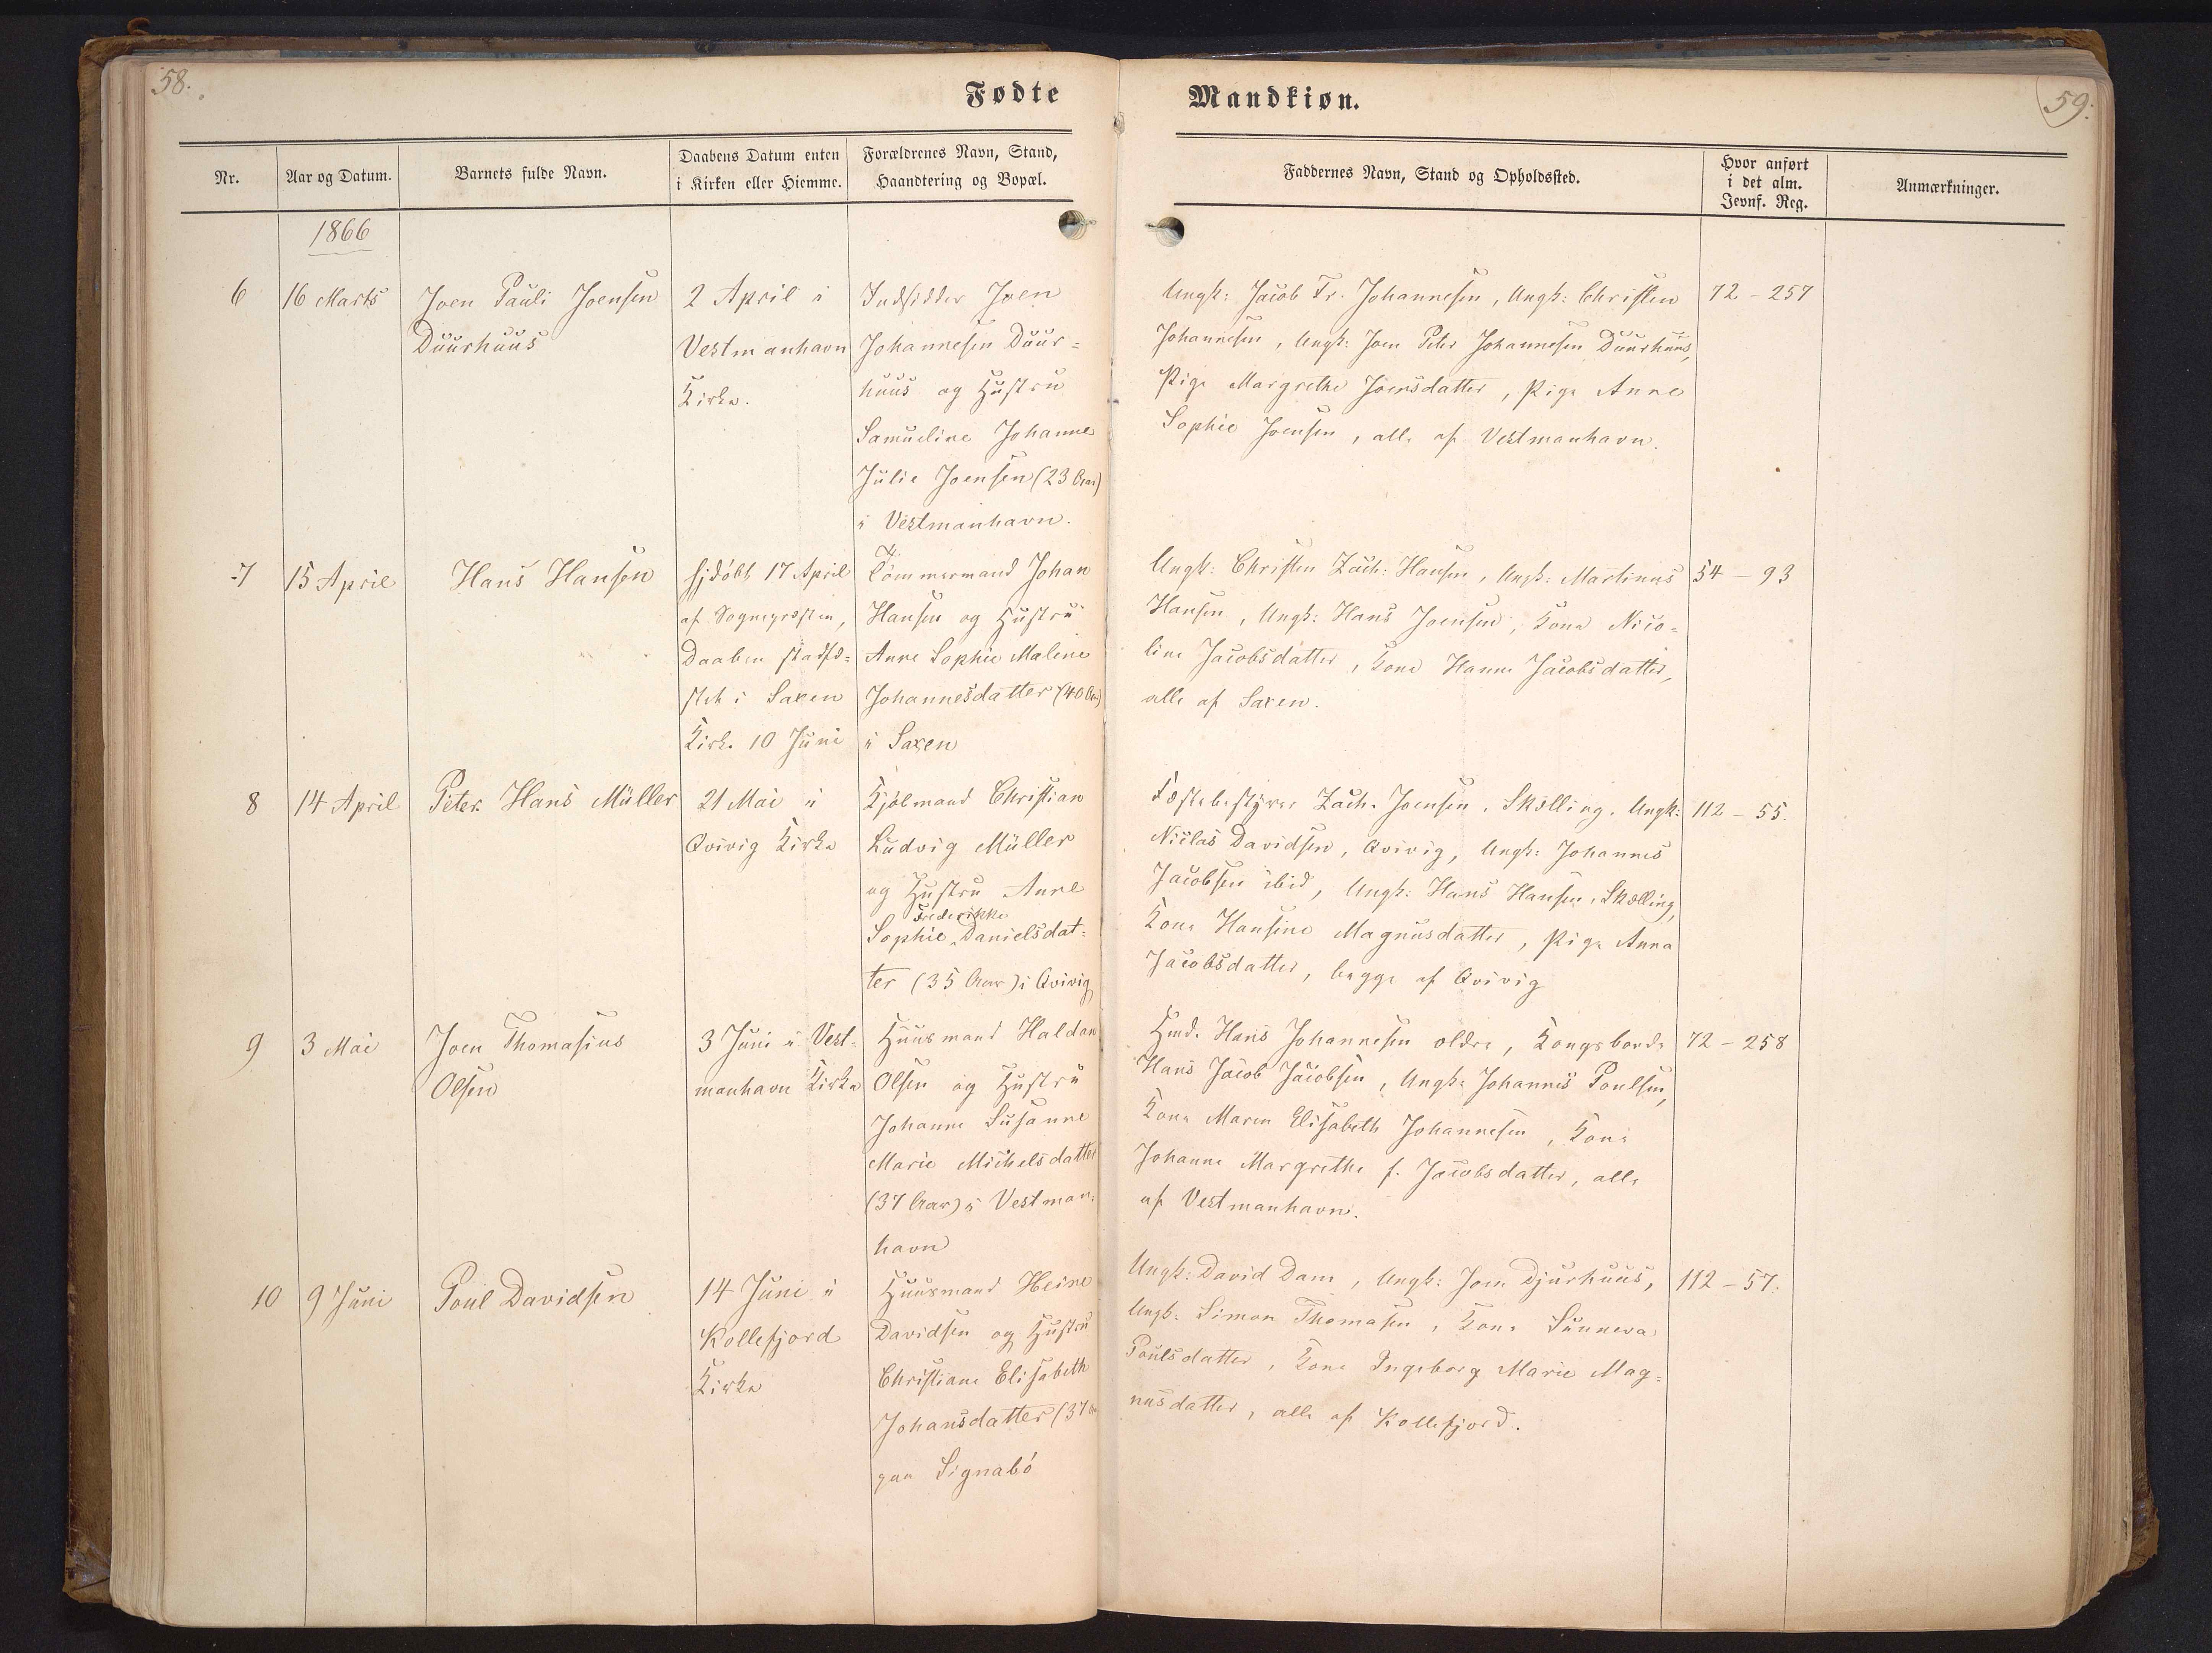 58.
Fødte
Nr.
Aar og Datum.
Barnets fulde Navn.
Daabens Datum enten
i Kirken eller Hiemme.
Forældrenes Navn, Stand,
Haandtering og Bopæl.
1866
6
16 Marts
Joen Pauli Joensen
Duurhuus
2 April i
Vestmanhavn
Kirke.
Indsidder Joen
Johannesen Duur=
huus og Hustru
Samueline Johanne
Julie Joensen (23 Aar)
i Vestmanhavn.
7
15 April
Hans Hansen
hjdöbt 17 April
af Sognepræsten,
Daaben stadfæ=
stet i Saxen
Kirke 10 Juni
Tömmermand Johan
Hansen og Hustru
Anne Sophie Malene
Johannesdatter (40 Aar)
i Saxen
8
14 April
Peter Hans Müller
21 Mai i
Qvivig Kirke
Hjólmand Christian
Ludvig Müller
og Hustru Anne
Frederikke
Sophie Danielsdat=
ter (35 Aar) i Qvivig
9
3 Mai
Joen Thomasius
Olsen
3 Juni i Vest=
manhavn Kirke
Huusmand Haldan
Olsen og Hustru
Johanne Susanne
Marie Michelsdatter
(37 Aar) i Vestman=
havn
10
9 Juni
Poul Davidsen
14 Juni i
Kollefjord
Kirke
Huusmand Heine
Davidsen og Hustru
Christiane Elisabeth
Johansdatter (37 Aar
paa Signabö
Mandkiøn.
59.
Faddernes Navn, Stand og Opholdssted.
Hvor anført
i det alm.
Jevnf. Reg.
Anmærkninger.
Ungk: Jacob Fr. Johannesen, Ungk: Christen
Johannesen, Ungk: Joen Peter Johannesen Duurhuus,
Pige Margrethe Joensdatter, Pige Anne
Sophie Joensen, alle af Vestmanhavn.
72 - 257
Ungk: Christen Zach: Hansen, Ungk: Martinus
Hansen, Ungk: Hans Joensen, Kone Nico=
line Jacobsdatter, Kone Hanne Jacobsdatter,
alle af Saxen.
54 - 93
Fæstebestyrer Zach. Joensen, Skælling, Ungk:
Niclas Davidsen, Qvivig, Ungk: Johannes
Jacobsen ibid, Ungk: Hans Hansen, Skælling,
Kone Hansine Magnusdatter, Pige Anna
Jacobsdatter, begge af Qvivig
112 - 55.
Hmd. Hans Johannesen ældre, Kongsbonde
Hans Jacob Jacobsen, Ungk: Johannes Poulsen,
Kone Maren Elisabeth Johannesen, Kone
Johanne Margrethe f. Jacobsdatter, alle
af Vestmanhavn.
72 - 258
Ungk: David Dam, Ungk: Joen Djurhuus,
Ungk: Simon Thomasen, Kone Sunneva
Poulsdatter, Kone Ingeborg Marie Mag=
nusdatter, alle af Kollefjord.
112 - 57.